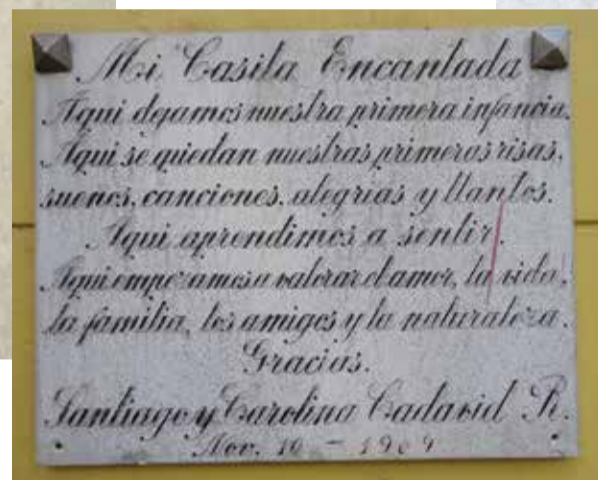 Mi Casita Encantada
Aqui dejamos nuestra primera infancia.
Aqui se quedan nuestras primeras risas,
suenos, canciones, alegrias y llantos.
Aqui aprendimos a sentir.
Aqui empezamos a valorar el amor, la vida,
la familia, los amigos y la naturaleza.
Gracias.
Santiago y Carolina Cadavid R.
Nov. 10 -